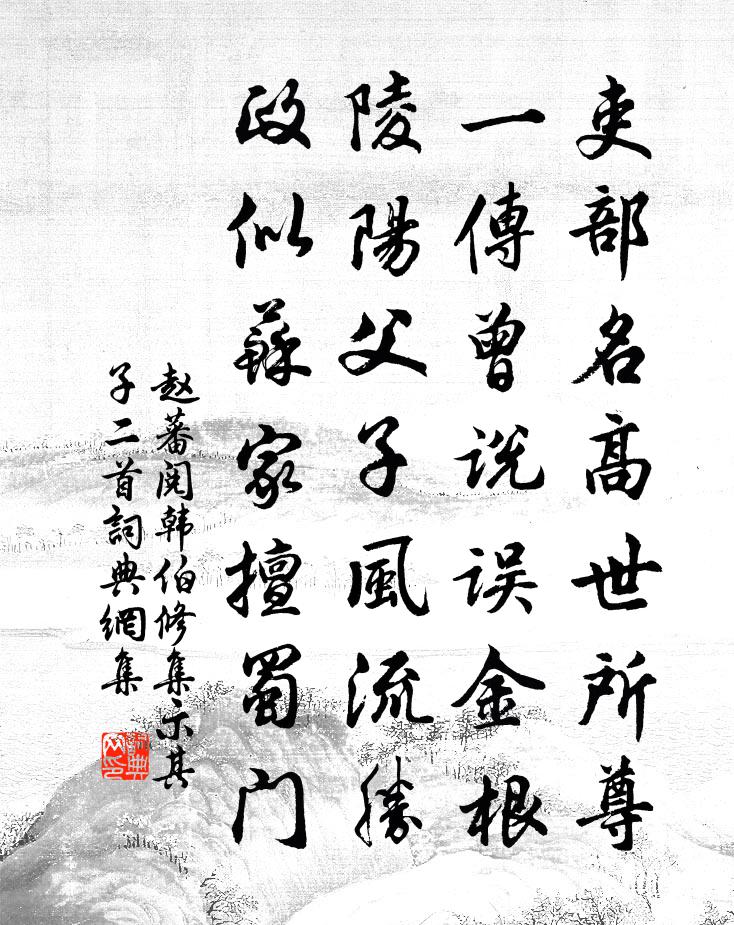 吏部名高世所尊
一傳曾説误金根
陵陽父子風流勝
政似蘇家擅蜀门
赵蕃阅韩伯修集示其
子二首詞典網集